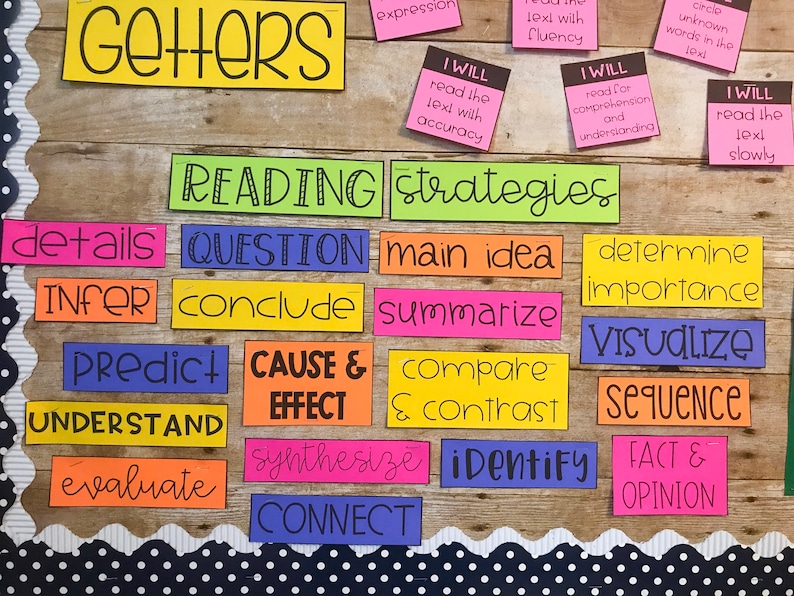 GETTERS
expression
read the
text with
fluency
circle
unknown
words in the
text
I WILL
read the
text with
accuracy
I WILL
read for
comprehension
and
understanding
I WILL
read the
text
slowly
READING strategies
details
QUESTION
main idea
determine
importance
INFER
conclude
summarize
VISUALIZE
predict
CAUSE &
EFFECT
compare
& contrast
SEQUENCE
UNDERSTAND
synthesize
identify
FACT &
OPINION
evaluate
CONNECT